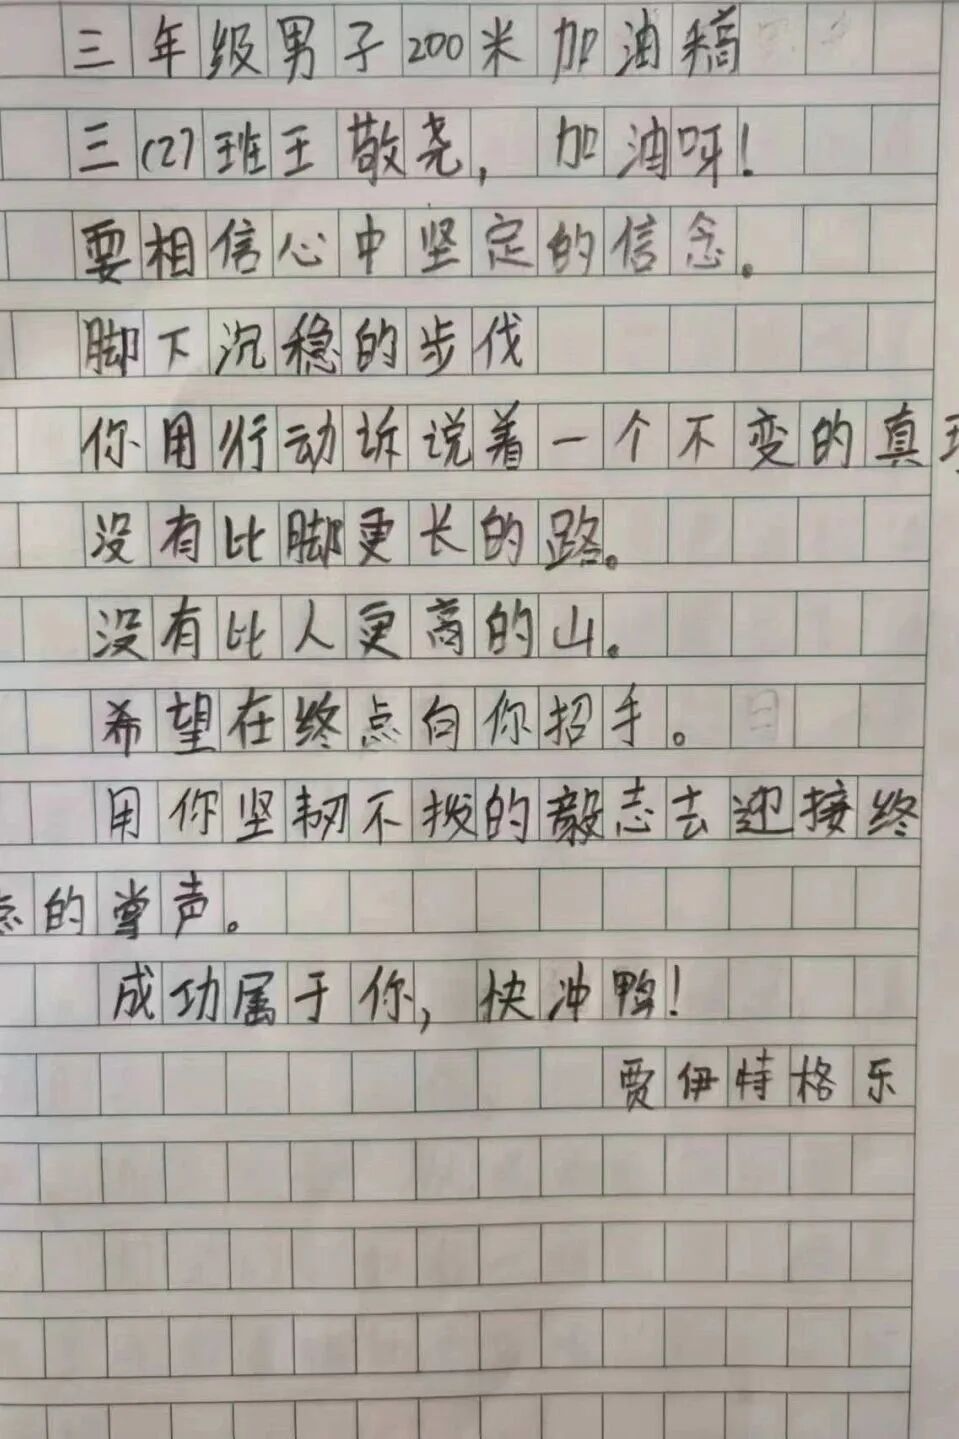 三年级男子200米加油稿
三(2)班王敬尧，加油呀！
要相信心中坚定的信念。
脚下沉稳的步伐
你用行动诉说着一个不变的真理
没有比脚更长的路。
没有比人更高的山。
希望在终点向你招手。
用你坚韧不拨的毅志去迎接终
点的掌声。
成功属于你，快冲鸭！
贾伊特格乐